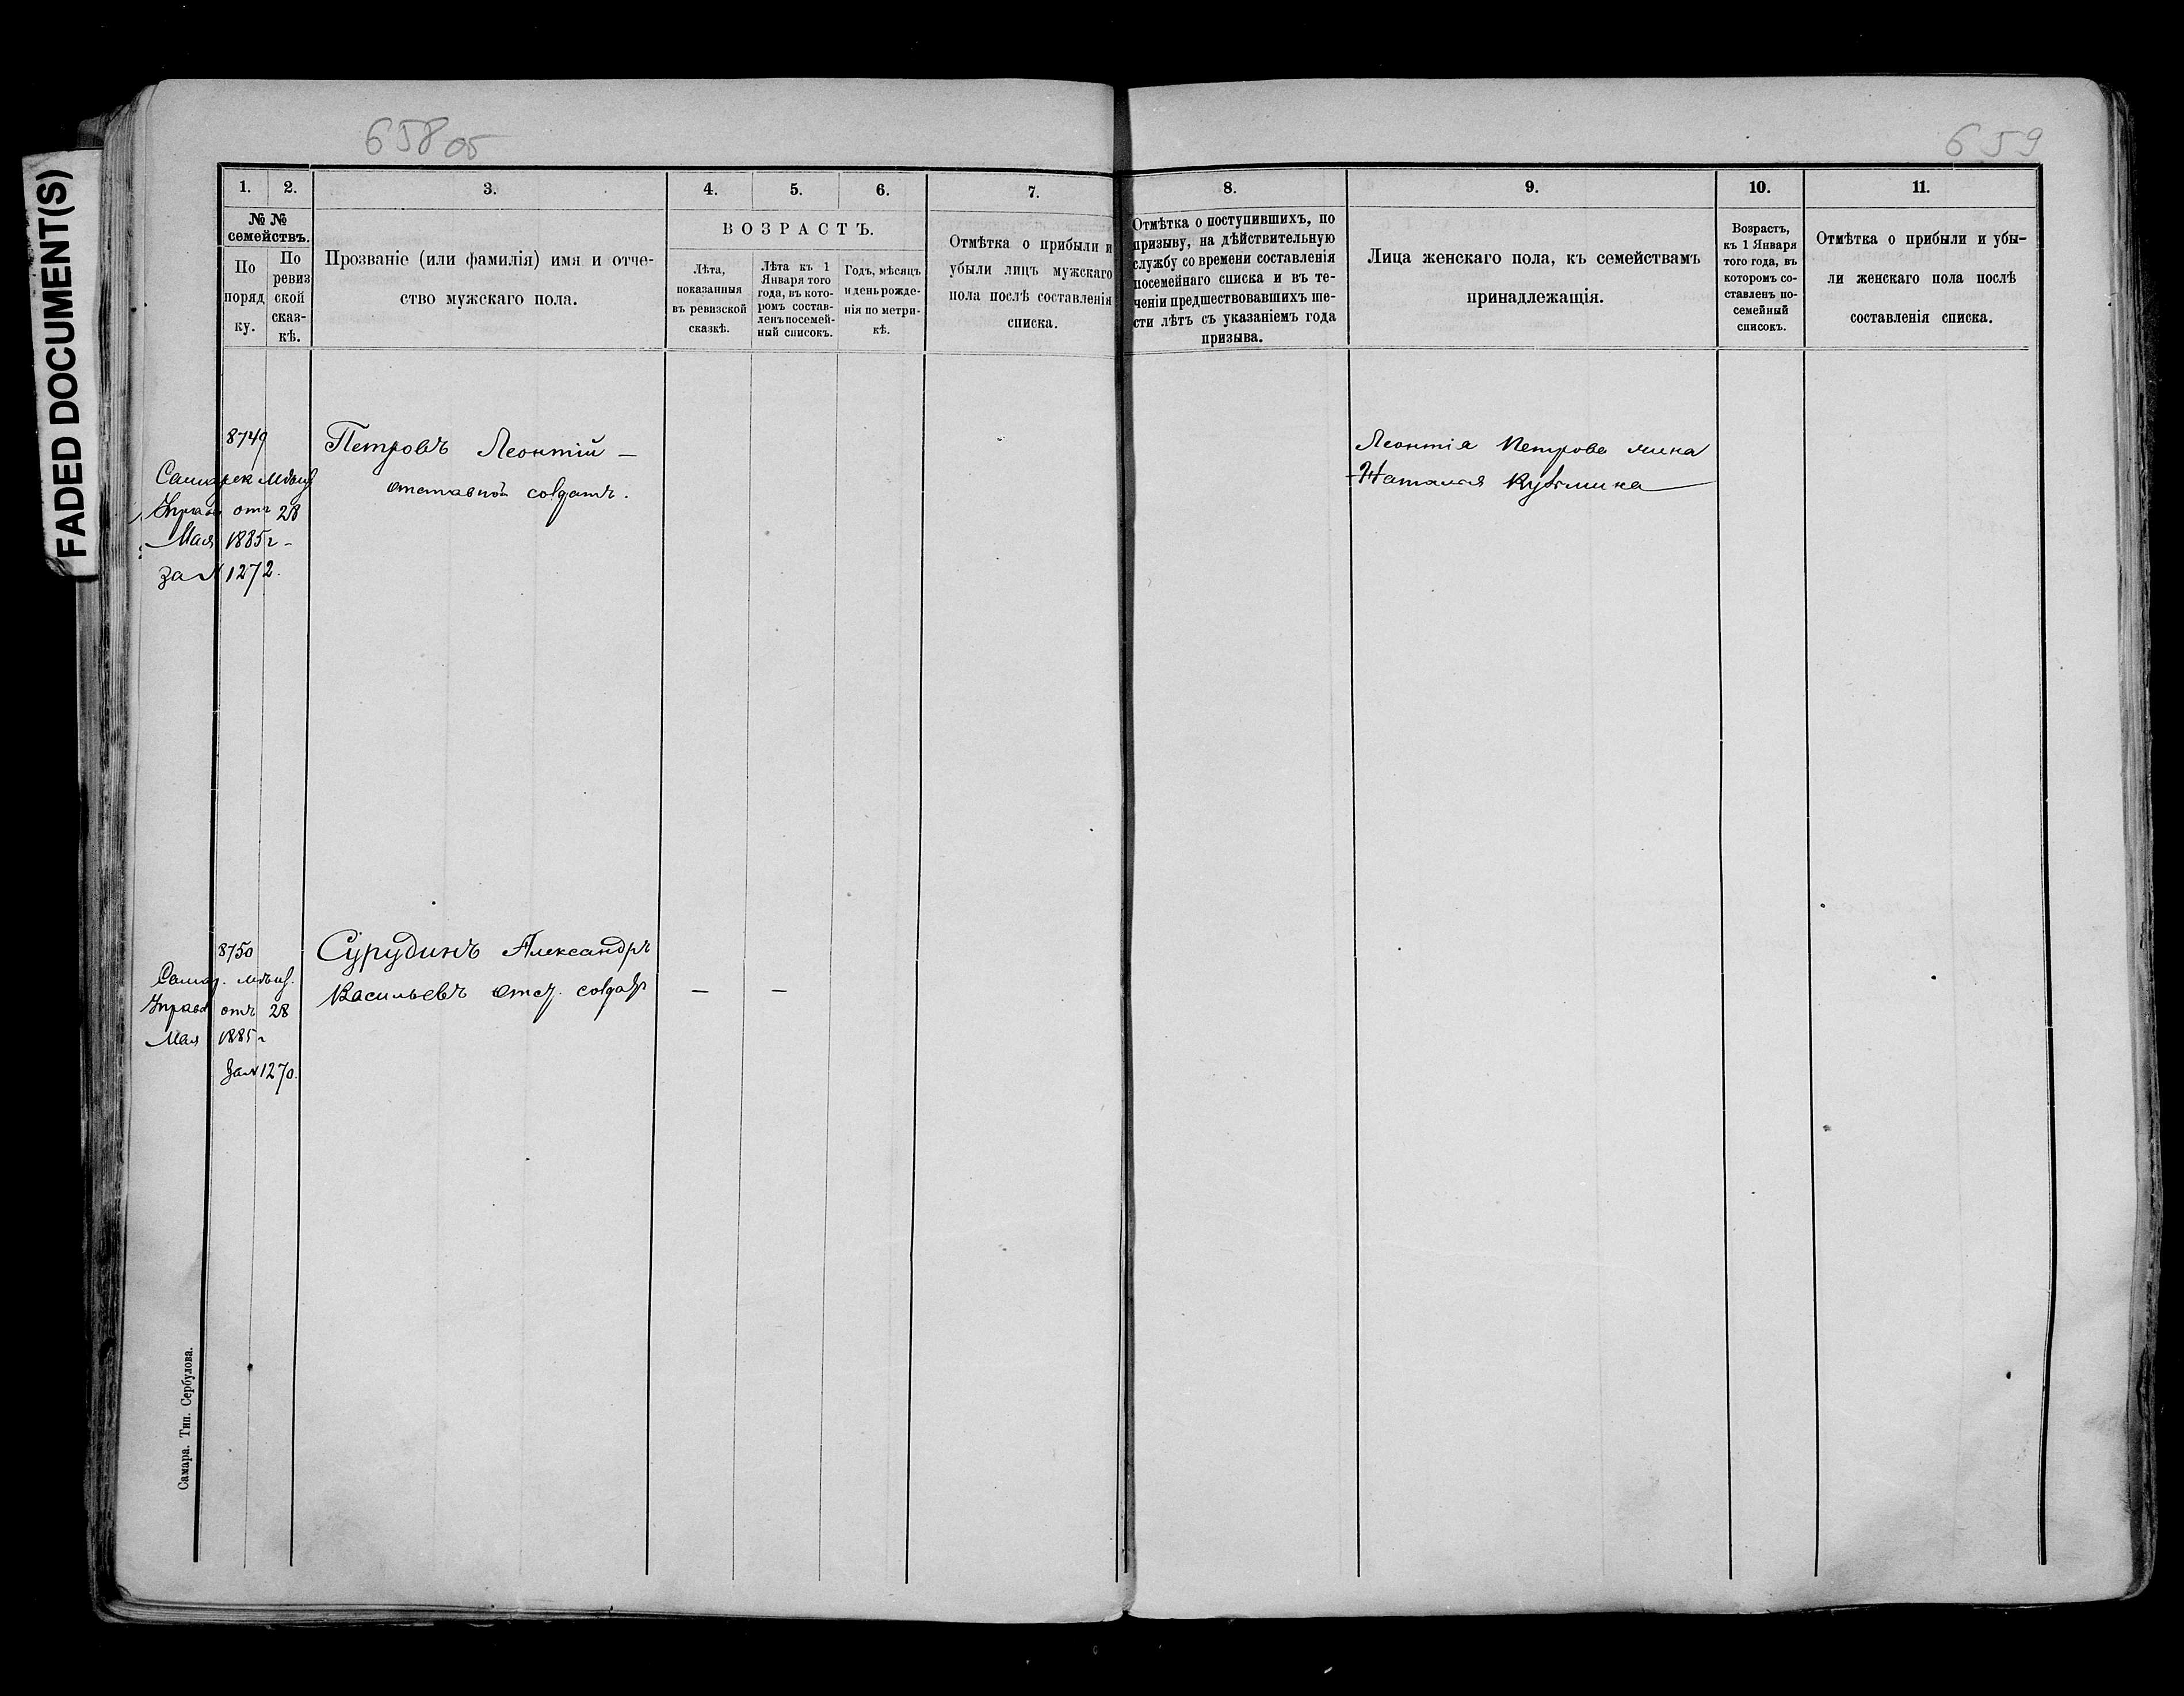 FADED DOCUMENT(S)
658 об
659
1.
2.
3.
4.
5.
6.
7.
8.
9.
10.
11.
№ №
семействъ.
По
поряд
ку.
По
ревиз
ской
сказ-
кѣ.
Прозваніе (или фамилія) имя и отче-
ство мужскаго пола.
ВОЗРАСТЪ.
Лѣта,
показанныя
въ ревизской
сказкѣ.
Лѣта къ 1
Января того
года, въ кото-
ромъ состав-
ленъ посемей-
ный списокъ.
Годъ, мѣсяцъ
и день рожде-
нія по метри-
кѣ.
Отмѣтка о прибыли и
убыли лицъ мужскаго
пола послѣ составленія
списка.
Отмѣтка о поступившихъ, по
призыву, на дѣйствительную
службу со времени составленія
посемейнаго списка и въ те-
ченіи предшествовавшихъ ше-
сти лѣтъ съ указаніемъ года
призыва.
Лица женскаго пола, къ семействамъ
принадлежащія.
Возрастъ,
къ 1 Января
того года, въ
которомъ со-
ставленъ по-
семейный
списокъ.
Отмѣтка о прибыли и убы-
ли женскаго пола послѣ
составленія списка.
8749
Самарск мѣщ
Управ отъ 28
Мая 1885 г -
за № 1272.
Петровъ Леонтій —
отставной солдатъ.
Леонтія Петрова жина
Наталья Кузьмина
8750
Самар. мѣщ.
Управ отъ 28
Мая 1885 г
За № 1270.
Сурудинъ Александръ
Васильевъ отст. солдатъ — —
Самара. Тип. Сербулова.